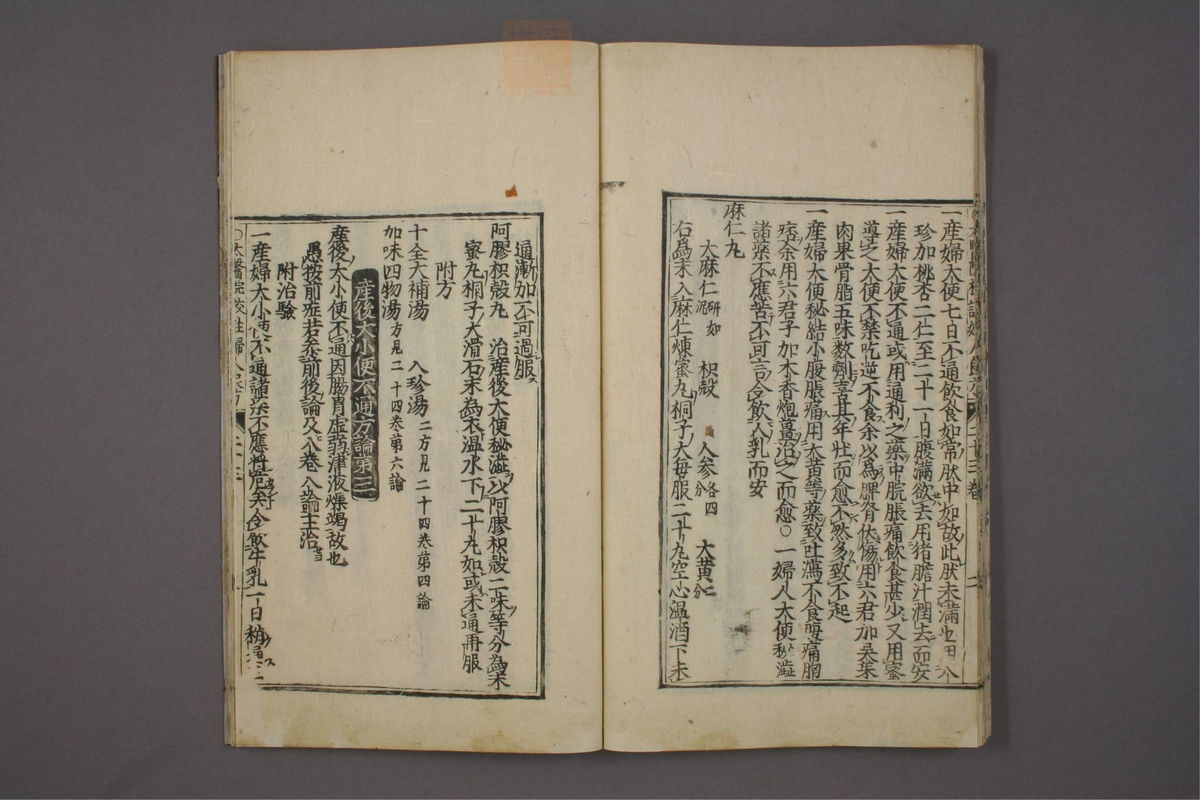 一産婦大便七日不通飲食如常腹中如故此腹未滿也用八
珍加桃杏二仁至二十一日腹滿欲去用猪膽汁潤去而安
一産婦大便不通或用通利之藥中脘脹痛飲食甚少又用蜜
導之大便不禁吃逆不食余以爲脾腎伏傷用六君加吳茱
肉果骨脂五味数劑喜其年壮而愈不然多致不起
一産婦大便秘結小腹脹痛用大黄等藥致吐瀉不食腹痛胸
痞余用六君子加木香炮薑治之而愈○一婦人大便秘澁
諸藥不應苦不可言令飲人乳而安
麻仁丸
大麻仁研如泥 枳殻 人参各四分 大黄二分
右爲末入麻仁煉蜜丸桐子大毎服二十丸空心温酒下未
通漸加不可過服
阿膠枳殻丸 治産後大便秘澁以阿膠枳殻二味等分為末
蜜丸桐子大滑石末為衣温水下二十丸如或未通再服
附方
十全大補湯 八珍湯二方見二十四巻第四論
加味四物湯方見二十四巻第六論
産後大小便不通方論第三
産後大小便不通因腸胃虚弱津液燥竭故也
愚按前症若参前後論及八巻八論主治
附治驗
一産婦大小便不通諸藥不應将危矣令飲牛乳一日稍